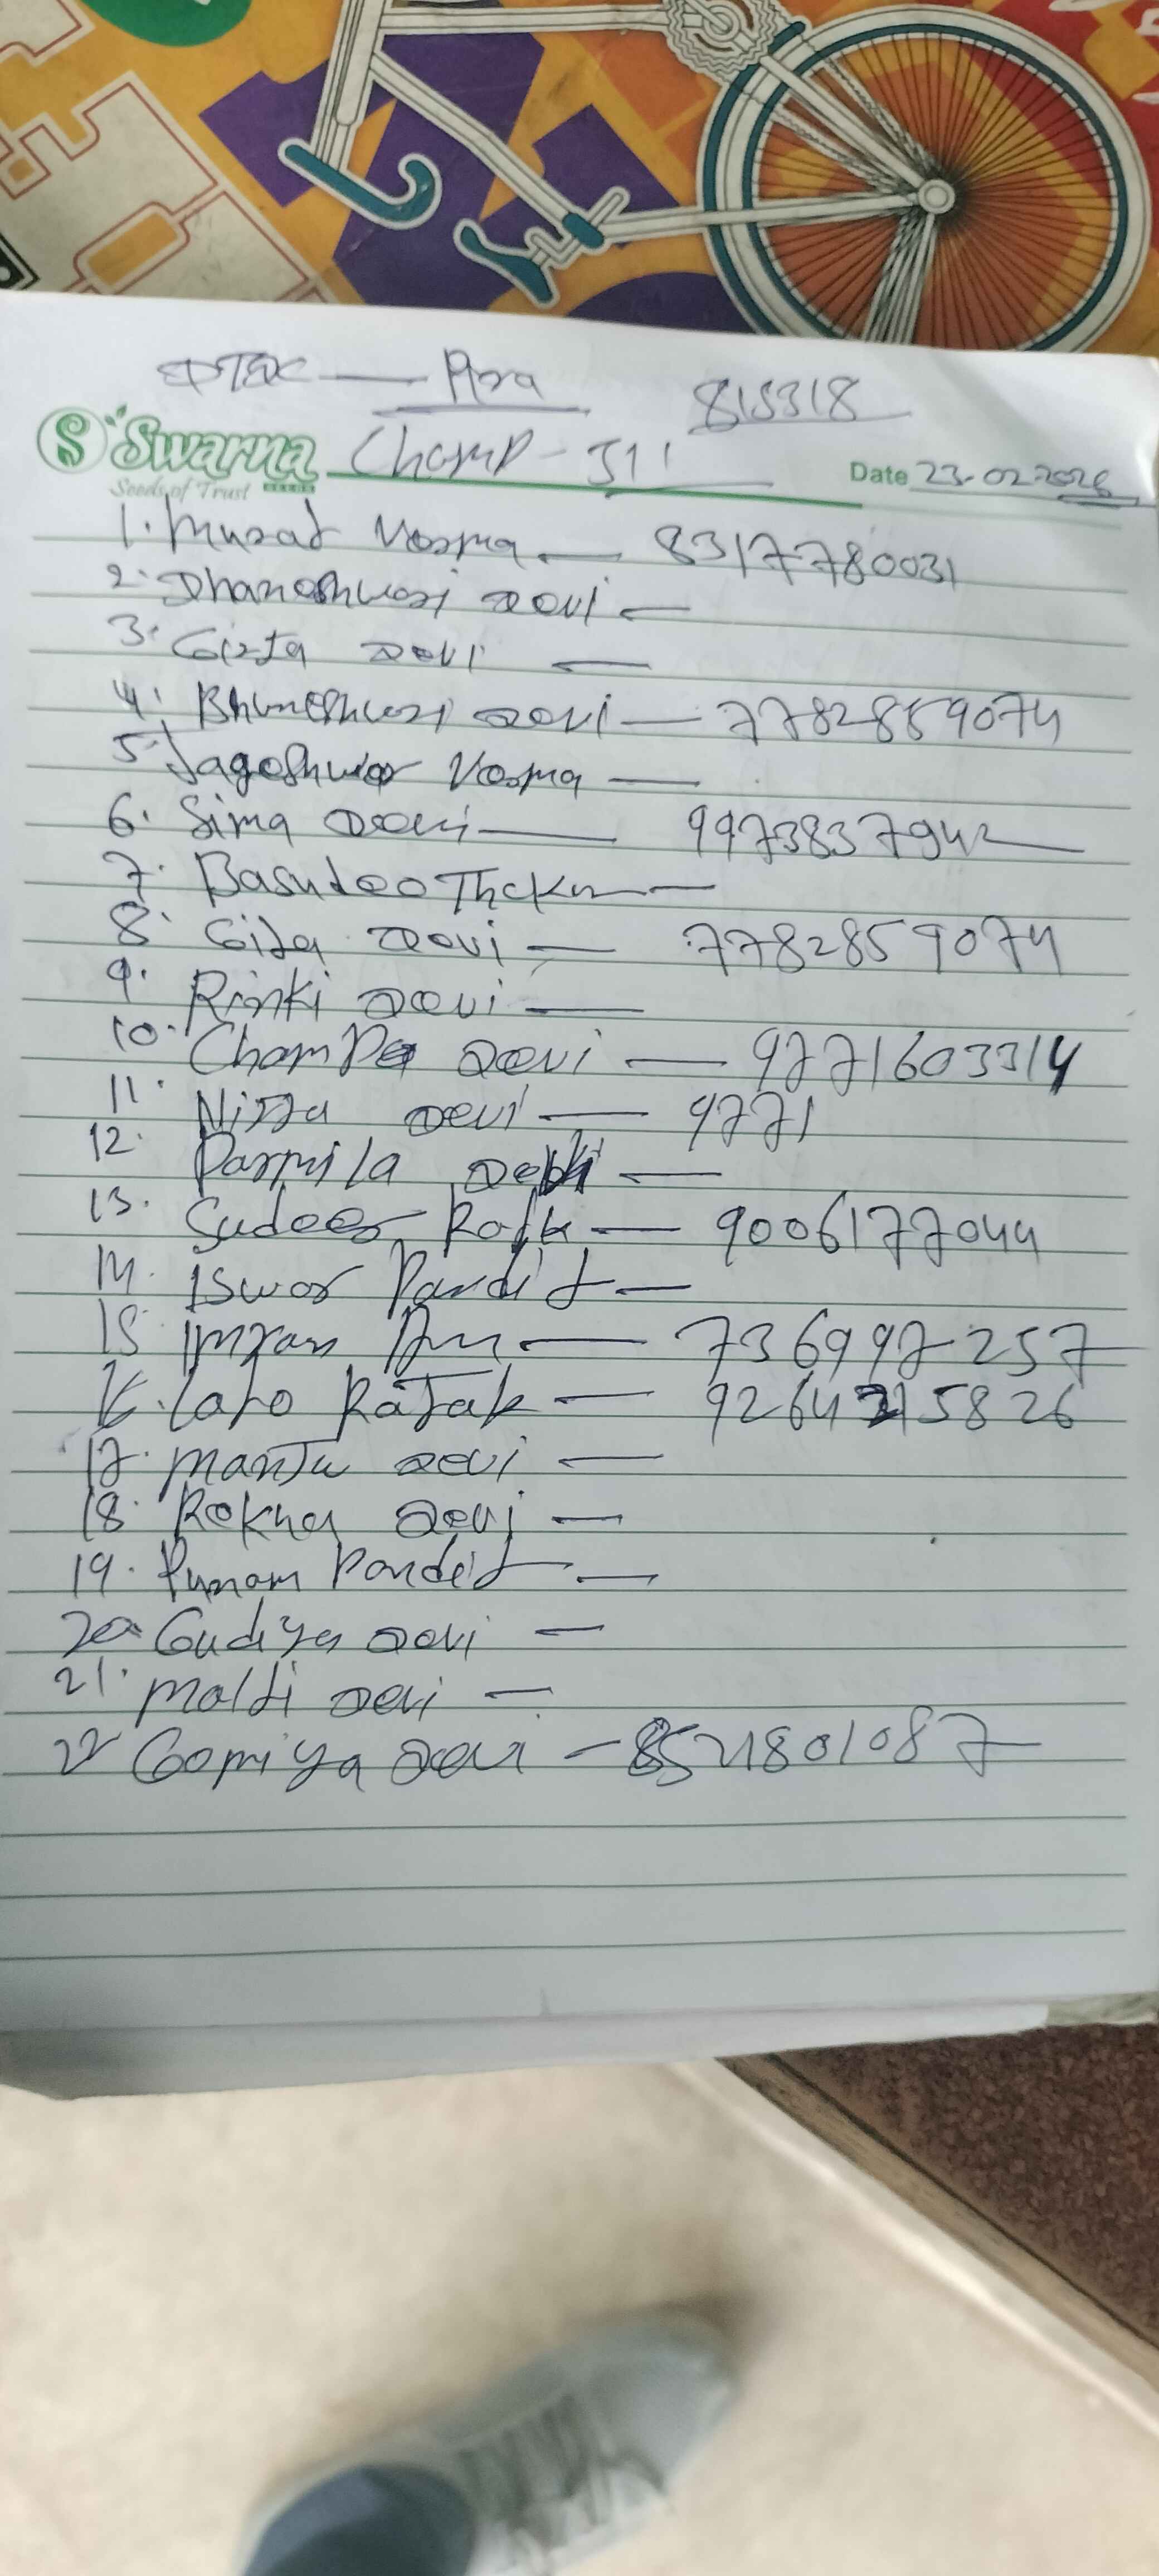 Ara 815318
Swarna Champ - 311
Seeds of Trust SEEDS Date 23.02.2026
1. Murat Verma — 8317780031
2. Dhaneshwari Devi —
3. Girja Devi —
4. Bhuneshwari Devi — 7782859074
5. Jageshwar Verma —
6. Sima Devi — 9973837942
7. Basudeo Thakur —
8. Gita Devi — 7782859074
9. Rinki Devi —
10. Champa Devi — 9771603314
11. Nirja Devi — 9771
12. Parmila Devi —
13. — 9006177044
14. Iswar Pandit —
15 Imran — 7369997257
16. Rajak —
17. Manju Devi —
18. Rekha Devi —
19. Punam Pandit —
20 Gudiya Devi —
21. Malti Devi —
22 Gomiya Devi — 8521801087